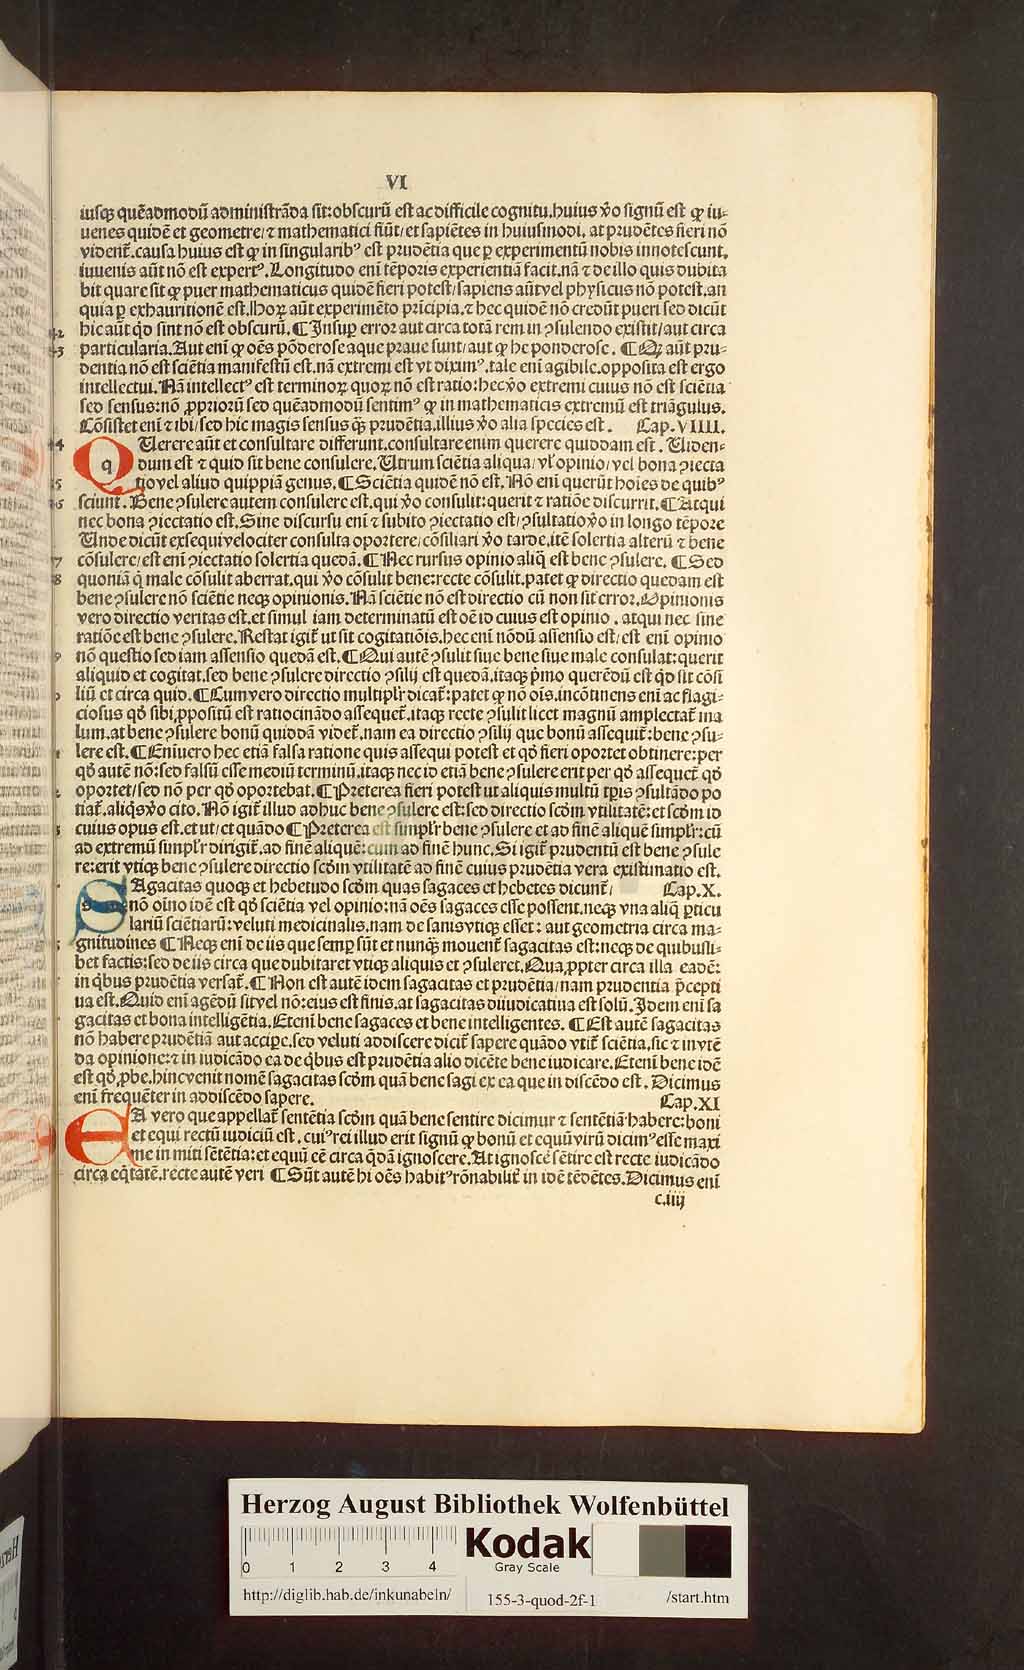 VI
iusqꝫ quēadmodū administrāda sit:obscurū est ac difficile cognitu.huius v̄o signū est ꝙ iu-
uenes quidē et geometre/⁊ mathematici fiūt/et sapiētes in huiusmodi. at prudētes fieri nō
viderit̄.causa huius est ꝙ in singularibꝰ est prudētia que ꝑ experimentū nobis innotescunt.
iuuenis aūt nō est expertꝰ.Longitudo eni tēporis experientiā facit.nā ⁊ de illo quis dubita
bit quare sit ꝙ puer mathematicus quidē fieri potest/sapiens aūt vel physicus nō potest.an
quia ꝑ exhauritionē est.Ihoꝝ aūt experimēto pricipia.⁊ hec quidē nō credūt pueri sed dicūt
hic aūt qd sint nō est obscurū.¶Insuꝑ error aut circa totā rem in ꝯsulendo existit/aut circa
particularia.Aut eni ꝙ oēs pōderose aque praue sunt/aut ꝙ he ponderose. ¶Qꝛ aūt pru-
dentia nō est sciētia manifestū est.nā extremi est vt diximꝰ.tale eni agibile.opposita est ergo
intellectui.Nā intellectꝰ est terminoꝝ quoꝝ nō est ratio:hec v̄o extremi cuius nō est sciētia
sed sensus:nō ꝓpriorū sed quēadmodū sentimꝰ ꝙ in mathematicis extremū est triāgulus.
Cōsistet eni ⁊ ibi/sed hic magis sensus qꝫ prudētia.illius v̄o alia species est. Cap.VIIII.
QUerere aūt et consultare differunt.consultare enim querere quiddam est. Uiden-
q dum est ⁊ quid sit bene consulere.Utrum sciētia aliqua/vl' opinio/vel bona ꝯiecta
tio vel aliud quippiā genus.¶Sciētia quidē nō est.Nō eni querūt hoies de quibꝰ
sciunt.Bene ꝯsulere autem consulere est.qui v̄o consulit:querit ⁊ ratiōe discurrit.¶Atqui
nec bona ꝯiectatio est.Sine discursu eni ⁊ subito ꝯiectatio est/ꝯsultatio v̄o in longo tēpore
Unde dicūt exsequi velociter consulta oportere/cōsiliari v̄o tarde.itē solertia alterū ⁊ bene
cōsulere/est eni ꝯiectatio solertia quedā.¶Nec rursus opinio aliq̄ est bene ꝯsulere. ¶Sed
quoniā q̄ male cōsulit aberrat.qui v̄o cōsulit bene:recte cōsulit.patet ꝙ directio quedam est
bene ꝯsulere nō sciētie neqꝫ opinionis.Nā sciētie nō est directio cū non sit error.Opinionis
vero directio veritas est.et simul iam determinatū est oē id cuius est opinio. atqui nec sine
ratiōe est bene ꝯsulere.Restat igit̄ ut sit cogitatiōis.hec eni nōdū assensio est/est eni opinio
nō questio sed iam assensio quedā est.¶Qui autē ꝯsulit siue bene siue male consulat:querit
aliquid et cogitat.sed bene ꝯsulere directio ꝯsilij est quedā.itaqꝫ p̄mo querēdū est qd sit cōsi
liū et circa quid.¶Cum vero directio multipl'r dicat̄:patet ꝙ nō oīs.incōtinens eni ac flagi-
ciosus qd̄ sibi ꝓpositū est ratiocinādo assequet̄.itaqꝫ recte ꝯsulit licet magnū amplectat̄ ma
lum.at bene ꝯsulere bonū quiddā videt̄.nam ea directio ꝯsilij que bonū assequit̄:bene ꝯsu-
lere est.¶Enīuero hec etiā falsa ratione quis assequi potest et qd̄ fieri oportet obtinere:per
qd̄ autē nō:sed falsū esse mediū terminū.itaqꝫ nec id etiā bene ꝯsulere erit per qd̄ assequet̄ qd̄
oportet/sed nō per qd̄ oportebat.¶Preterea fieri potest ut aliquis multū tꝑis ꝯsultādo po
tiat̄.aliqs v̄o cito.Nō igit̄ illud adhuc bene ꝯsulere est:sed directio scd̄m vtilitatē:et scd̄m id
cuius opus est.et ut/et quādo ¶Preterea est simpl'r bene ꝯsulere et ad finē aliquē simpl'r:cū
ad extremū simpl'r dirigit̄.ad finē aliquē:cum ad finē hunc.Si igit̄ prudentū est bene ꝯsule
re:erit vtiqꝫ bene ꝯsulere directio scd̄m vtilitatē ad finē cuius prudētia vera existimatio est.
SAgacitas quoqꝫ et hebetudo scd̄m quas sagaces et hebetes dicunt̄/ Cap.X.
nō oīno idē est qd̄ sciētia vel opinio:nā oēs sagaces esse possent.neqꝫ vna aliq̄ ꝑticu
lariū sciētiarū:veluti medicinalis.nam de sanis vtiqꝫ esset: aut geometria circa ma-
gnitudines ¶Neqꝫ eni de iis que semꝑ sūt et nunqꝫ mouent̄ sagacitas est:neqꝫ de quibusli-
bet factis:sed de iis circa que dubitaret vtiqꝫ aliquis et ꝯsuleret.Qua ꝓpter circa illa eadē:
in q̄bus prudētia versat̄.¶Non est autē idem sagacitas et prudētia/nam prudentia p̄cepti
ua est.Quid eni agēdū sit vel nō:eius est finis.at sagacitas diiudicatiua est solū.Idem eni sa
gacitas et bona intelligētia.Eteni bene sagaces et bene intelligentes. ¶Est autē sagacitas
nō habere prudētiā aut accipe.sed veluti addiscere dicit̄ sapere quādo vtit̄ sciētia.sic ⁊ in vtē
da opinione:⁊ in iudicādo ea de q̄bus est prudētia alio dicēte bene iudicare.Eteni bene idē
est qd̄ ꝓbe.hinc venit nomē sagacitas scd̄m quā bene sagi ex ea que in discēdo est. Dicimus
eni frequēter in addiscēdo sapere. Cap.XI
EA vero que appellat̄ sentētia scd̄m quā bene sentire dicimur ⁊ sentētiā habere:boni
et equi rectū iudiciū est. cuiꝰ rei illud erit signū ꝙ bonū et equū virū dicimꝰ esse maxi
me in miti sētētia:et equū eē circa q̄dā ignoscere.At ignoscē sētire est recte iudicādo
circa eq̄tatē.recte autē veri ¶Sūt autē hi oēs habitꝰ rōnabilit̄ in idē tēdētes.Dicimus eni
c.iiij
Herzog August Bibliothek Wolfenbüttel
0 1 2 3 4
Kodak
Gray Scale
http://diglib.hab.de/inkunabeln/ 155-3-quod-2f-1 /start.htm